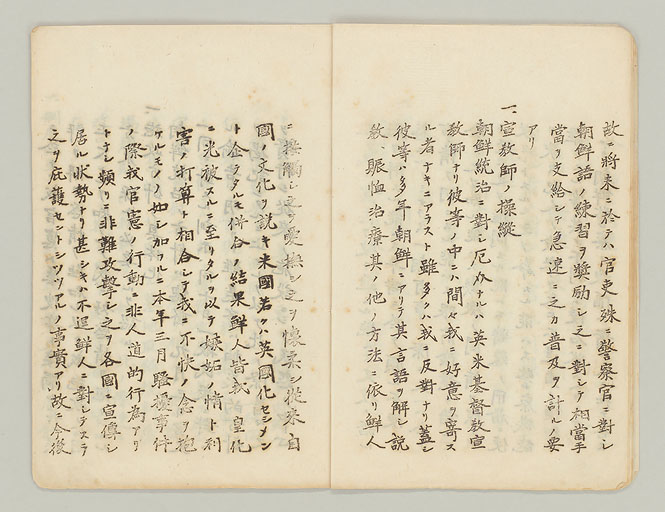 故ニ將来ニ於テハ官吏殊ニ警察官ニ對シ
朝鮮語ノ練習ヲ奬励シ之ニ對シテ相當手
當ヲ支給シテ急速ニ之カ普及ヲ計ルノ要
アリ
一、宣教師ノ操縱
朝鮮統治ニ對シ厄介ナルハ英米基督教宣
教師ナリ彼等ノ中ニハ間々我ニ好意ヲ寄ス
ル者ナキニアラスト雖多クハ我ニ反對ナリ蓋シ
彼等ハ多年朝鮮ニアリテ其言語ヲ解シ説
教、賑恤治療其ノ他ノ方法ニ依リ鮮人
ニ接觸シ之ヲ愛撫シ之ヲ懐柔シ從来自
國ノ文化ヲ説キ米國若クハ英國化セシメン
ト企ヲタルモ併合ノ結果鮮人皆我カ皇化
ニ光被スルニ至リタルヲ以テ嫉妬ノ情ト利
害ノ打算ト相合シテ我ニ不快ノ念ヲ抱
ケルモノノ如シ加フルニ本年三月騒擾事件
ノ際我官憲ノ行動ニ非人道的行為アリ
トナシ頻リニ非難攻撃シ之ヲ各國ニ宣傳シ
居ル状勢ナリ甚シキハ不逞鮮人ニ對シテスラ
之ヲ庇護セントシツツアルノ事實アリ故ニ今後